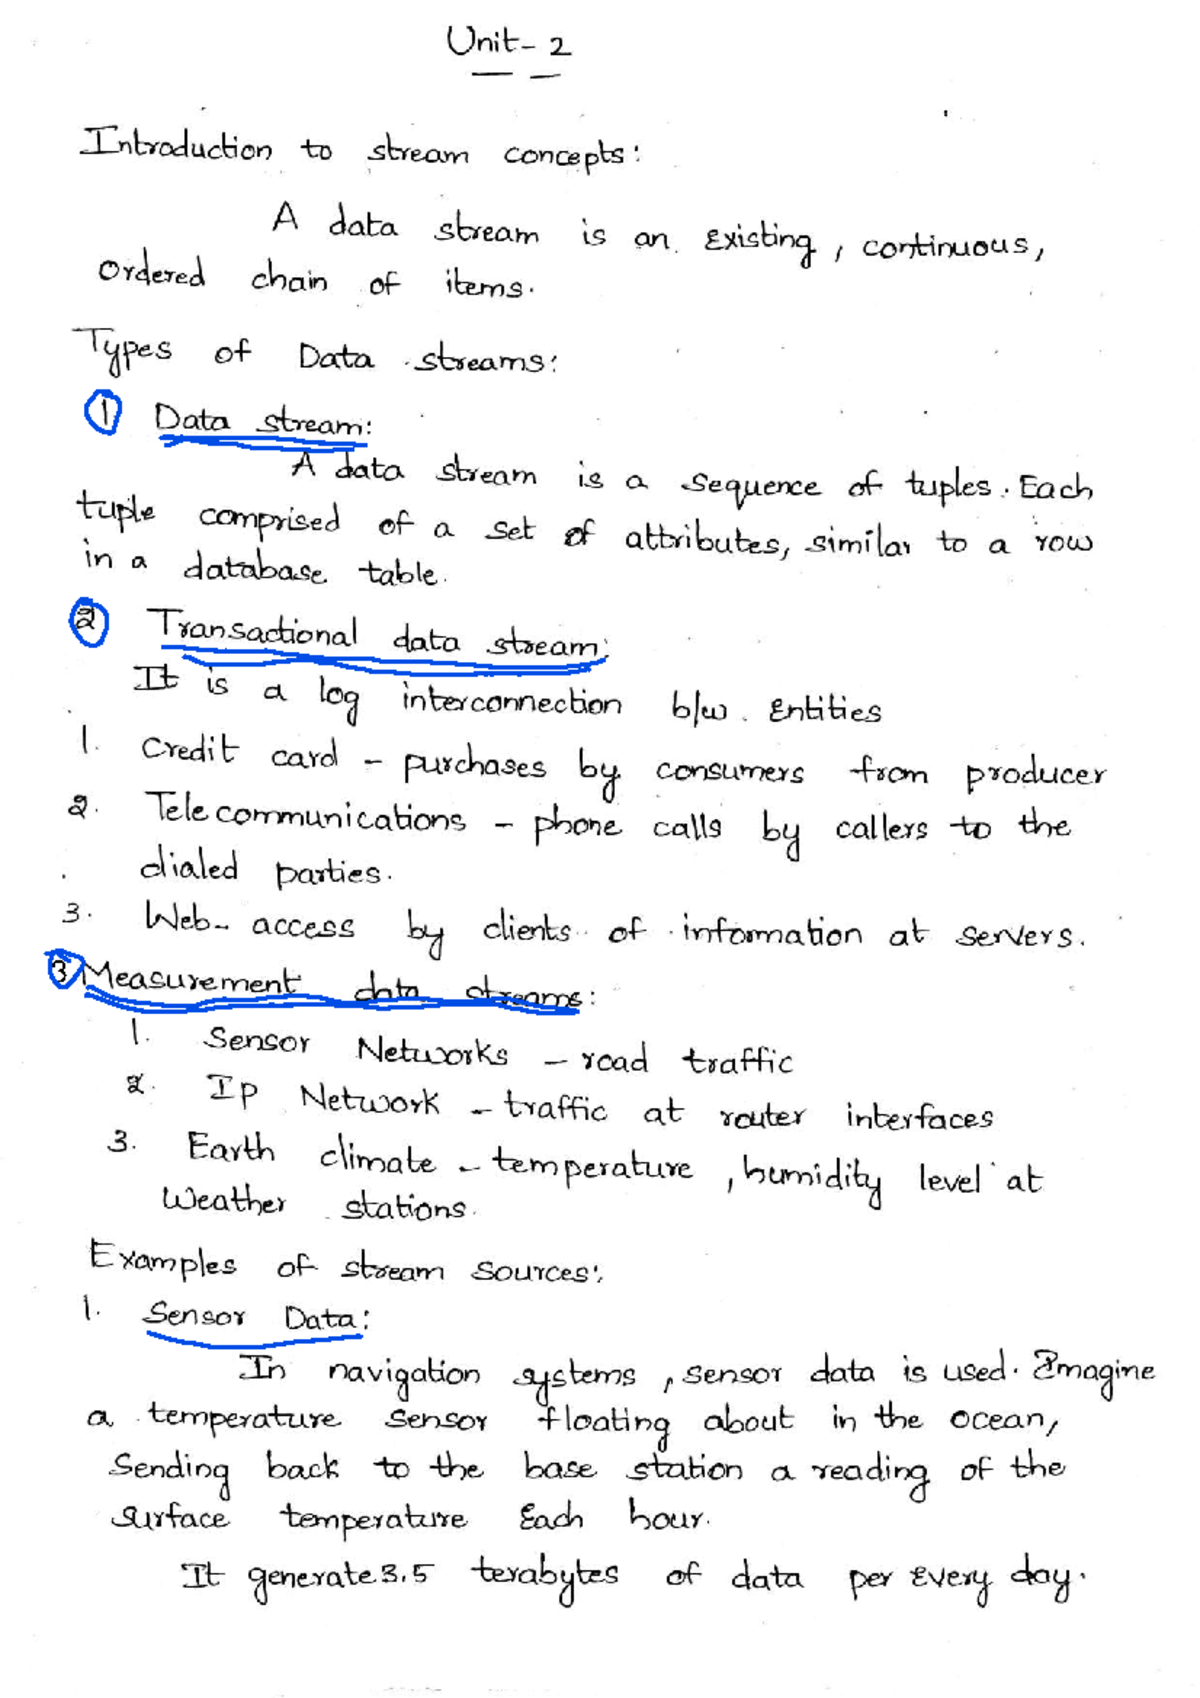 Unit- 2
Introduction to stream concepts:
A data stream is an Existing, continuous,
ordered chain of items.
Types of Data streams:
1 Data stream:
A data stream is a sequence of tuples. Each
tuple comprised of a set of attributes, similar to a row
in a database table.
2 Transactional data stream:
It is a log interconnection b/w. Entities
1. Credit card - purchases by consumers from producer
2. Tele communications - phone calls by callers to the
dialed parties.
3. Web- access by clients of information at servers.
3 Measurement data streams:
1. Sensor Networks - road traffic
2. Ip Network - traffic at router interfaces
3. Earth climate - temperature, humidity level at
Weather stations.
Examples of stream sources:
1. Sensor Data:
In navigation systems, sensor data is used. Imagine
a temperature sensor floating about in the ocean,
Sending back to the base station a reading of the
surface temperature Each hour.
It generate 3.5 terabytes of data per Every day.